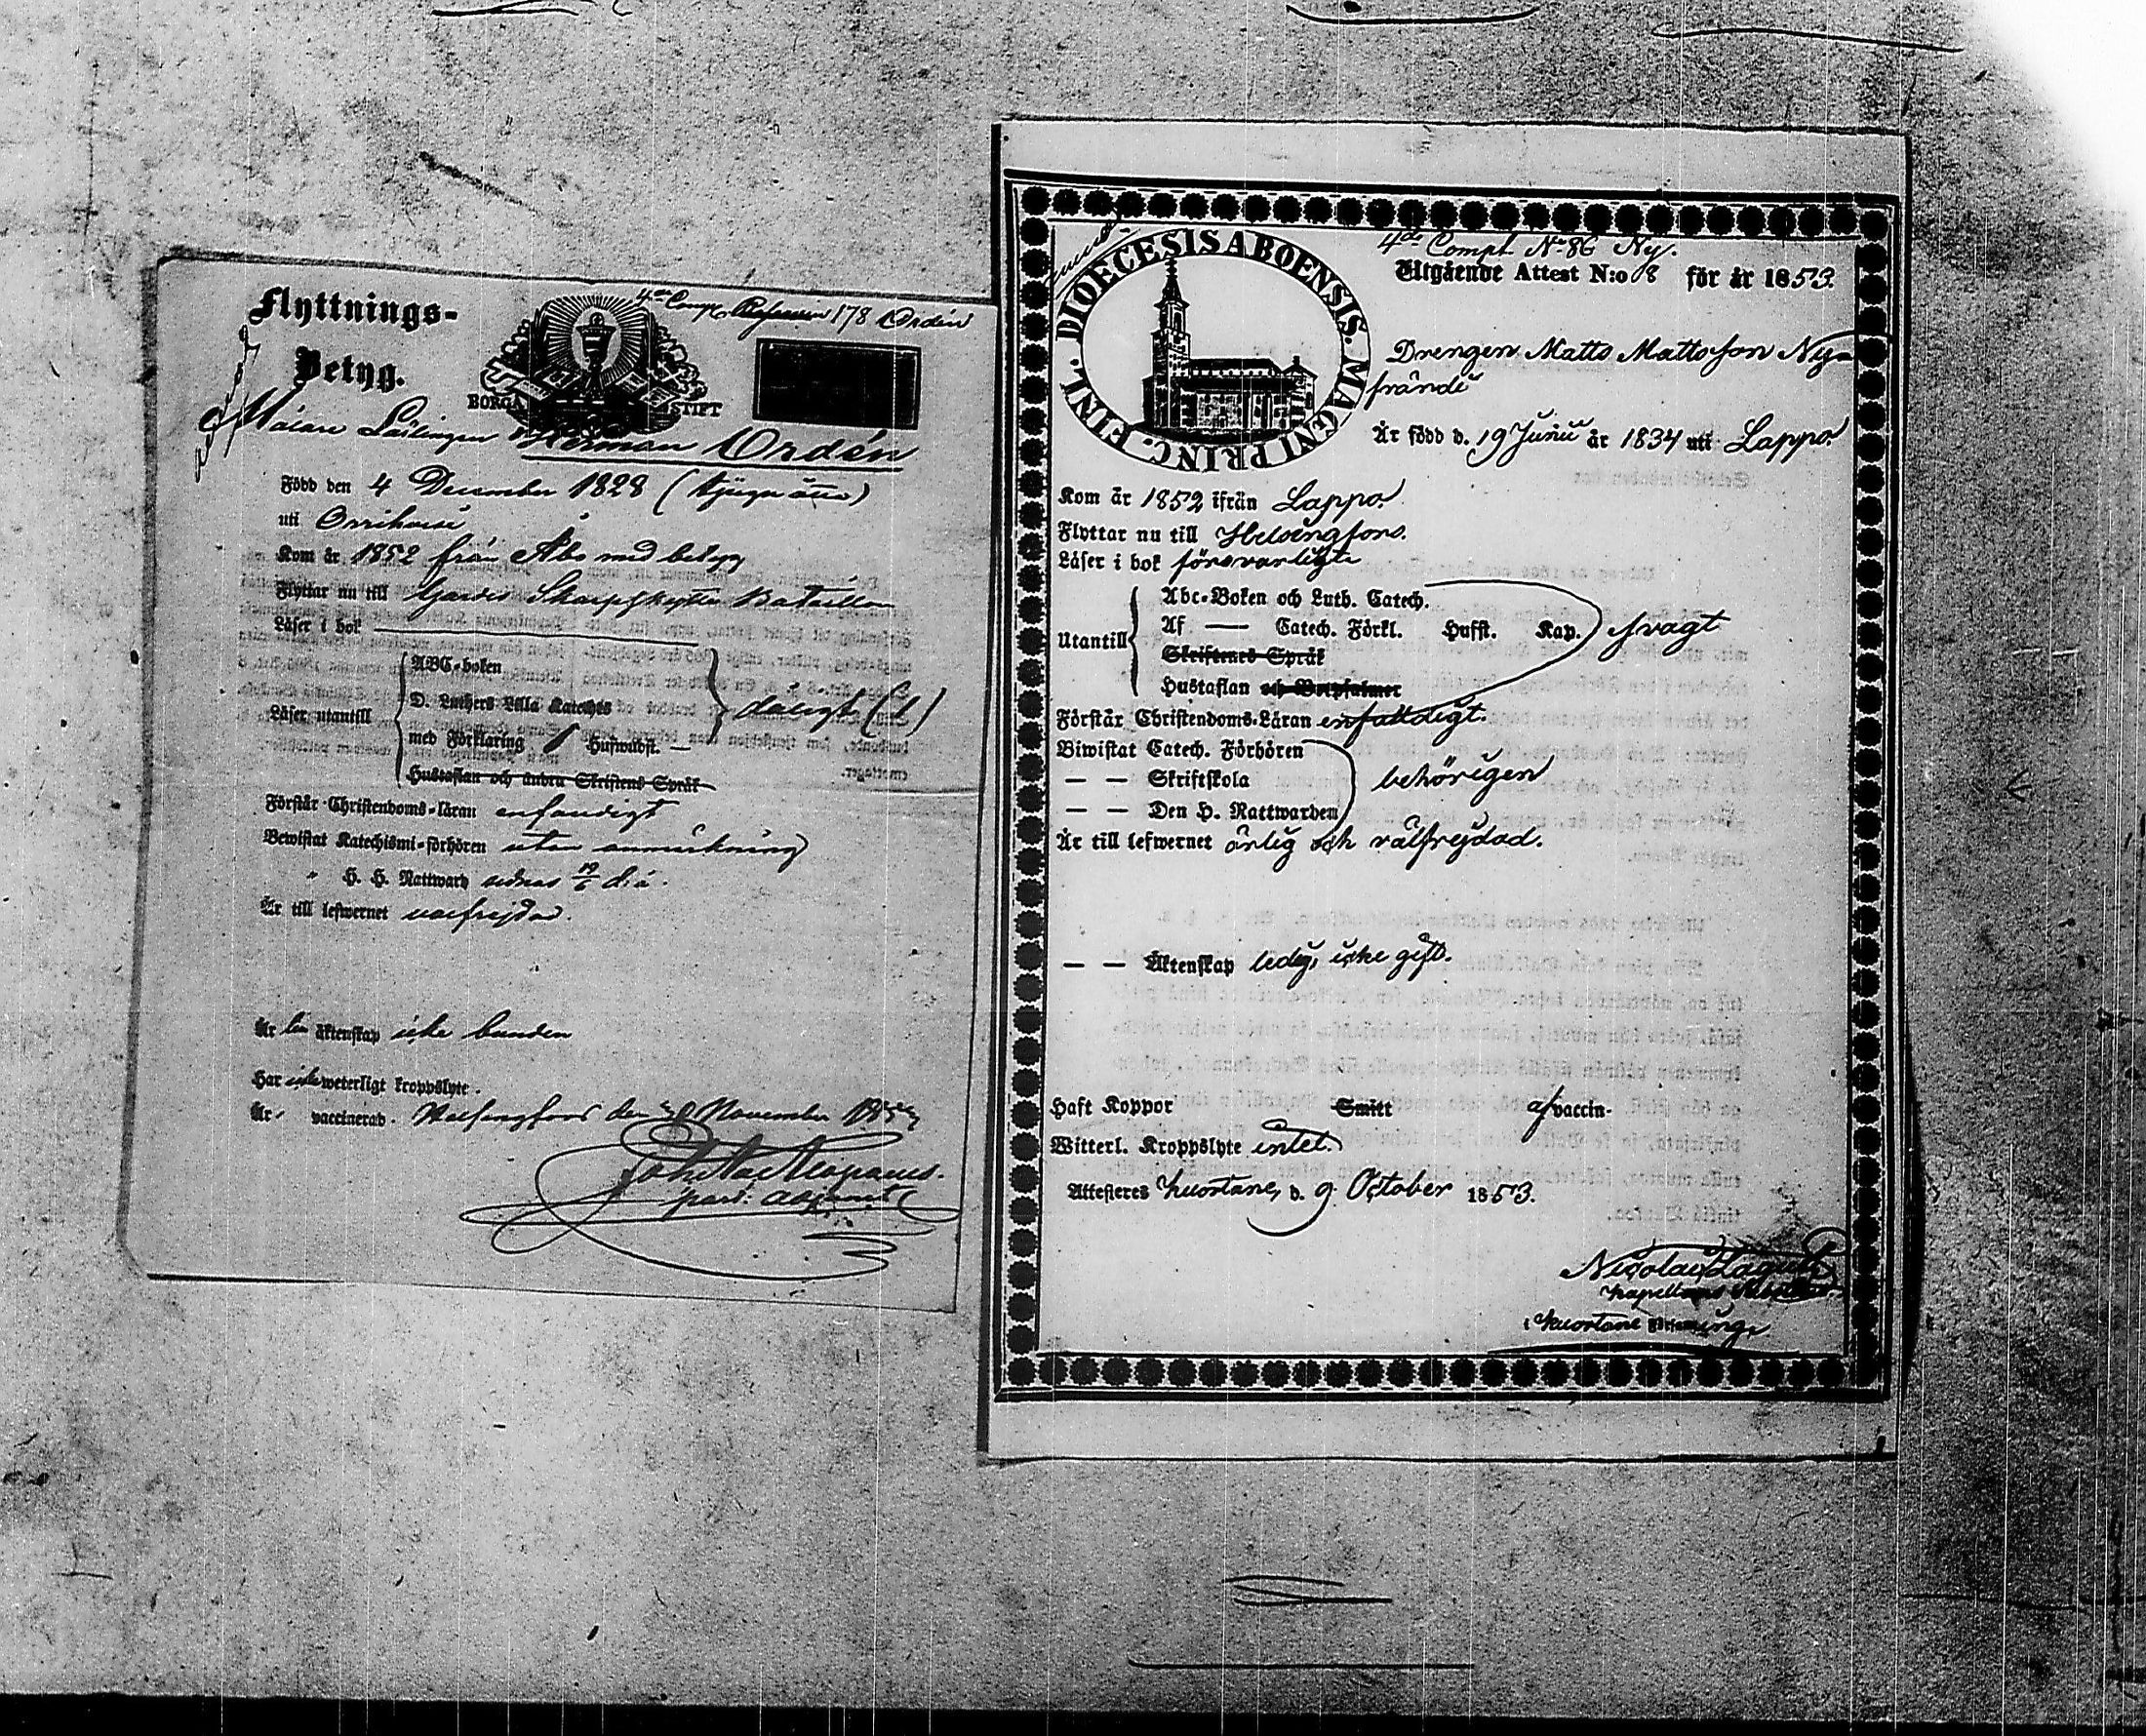 4de Comp. 178 Ordén
Flyttnings-
Betyg.
BORGÅ STIFT
Målare Lärlingen Herman Ordén
Född den 4 December 1828 (tjuguåtta)
uti Orrihvesi
Kom år 1852 från Åbo med betyg
Flyttar nu till Gardes Skarpskytte Bataillon
Läser i bok
Läser utantill
ABC-boken
D. Luthers Lilla Kateches
med Förklaring Hufwudst. —
dåligt
Hustaflan och andra Skriftens Språk
Förstår Christendoms-läran enfaldigt
Bewistat Katechismi-förhören utan anmärkning
" H. H. Nattward sednast 19/6 d. å.
Är till lefwernet välfrejdad.
Är i äktenskap icke bunden
Har icke weterligt kroppslyte.
Är vaccinerad. Helsingfors den November
past. adjunct
DIOECESIS ABOENSIS. MAGNI PRINC. FINL.
4de Comp. N° 86 Ny.
Utgående Attest N:o 8 för år 1853.
Drengen Matts Mattsson Ny-
frände
Är född d. 19 Junii år 1834 uti Lappo.
Kom år 1852 ifrån Lappo.
Flyttar nu till Helsingfors.
Läser i bok försvarligt
Utantill
Abc-Boken och Luth. Catech.
Af — Catech. Förkl. Hufst. Kap.
svagt
Skriftenes Språk
Hustaflan och Botpsalmer
Förstår Christendoms-Läran enfaldigt.
Biwistat Catech. Förhören
— — Skriftskola
behörigen
— — Den H. Nattwarden
Är till lefwernet ärlig och välfrejdad.
— — Äktenskap ledig, icke gift.
Haft Koppor Smitt af vaccin-
Witterl. Kroppslyte intet.
Attesteres Kuortane, d. 9 October 1853.
Nicolaus Lagus
Kapellans
i Kuortane